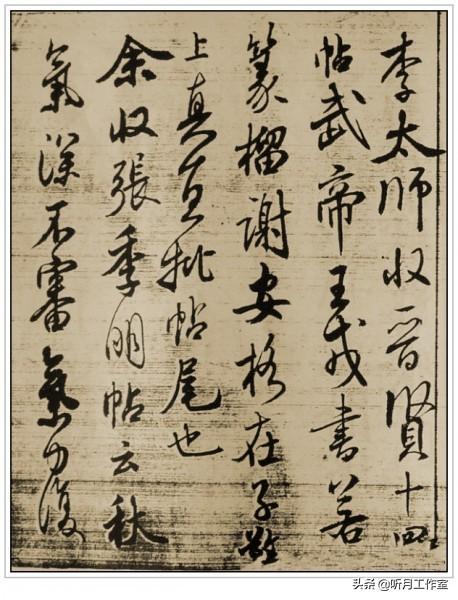 李太師收晉賢十四
帖武帝王戎書若
篆榴謝安格在子敬
上真宜批帖尾也
余收張季明帖云秋
氣深不審氣力復
头条 @听月工作室